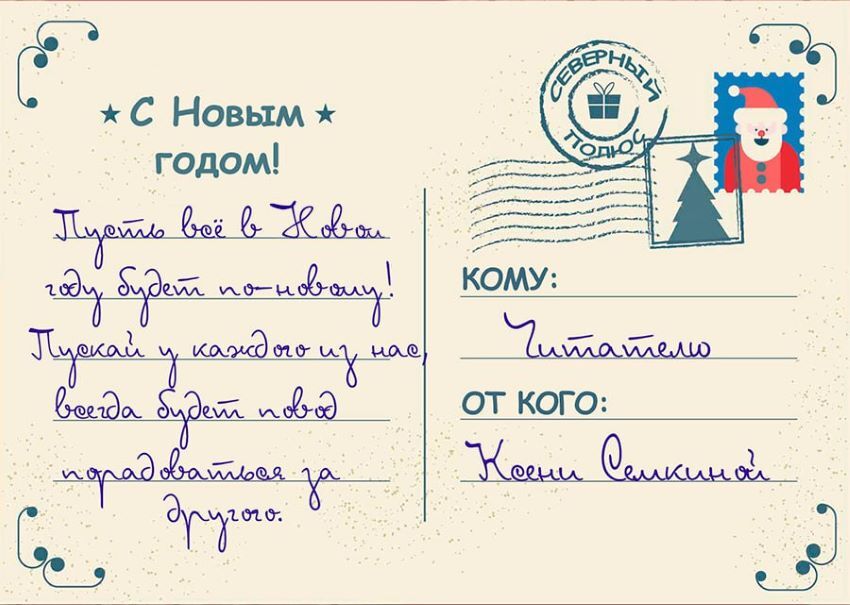 ★ С Новым ★
годом!
Пусть всё в Новом
году будет по-новому!
Пускай у каждого из нас,
всегда будет повод
порадоваться за
другого.
СЕВЕРНЫЙ
ПОЛЮС
КОМУ:
Читателю
ОТ КОГО:
Ксени Семкиной